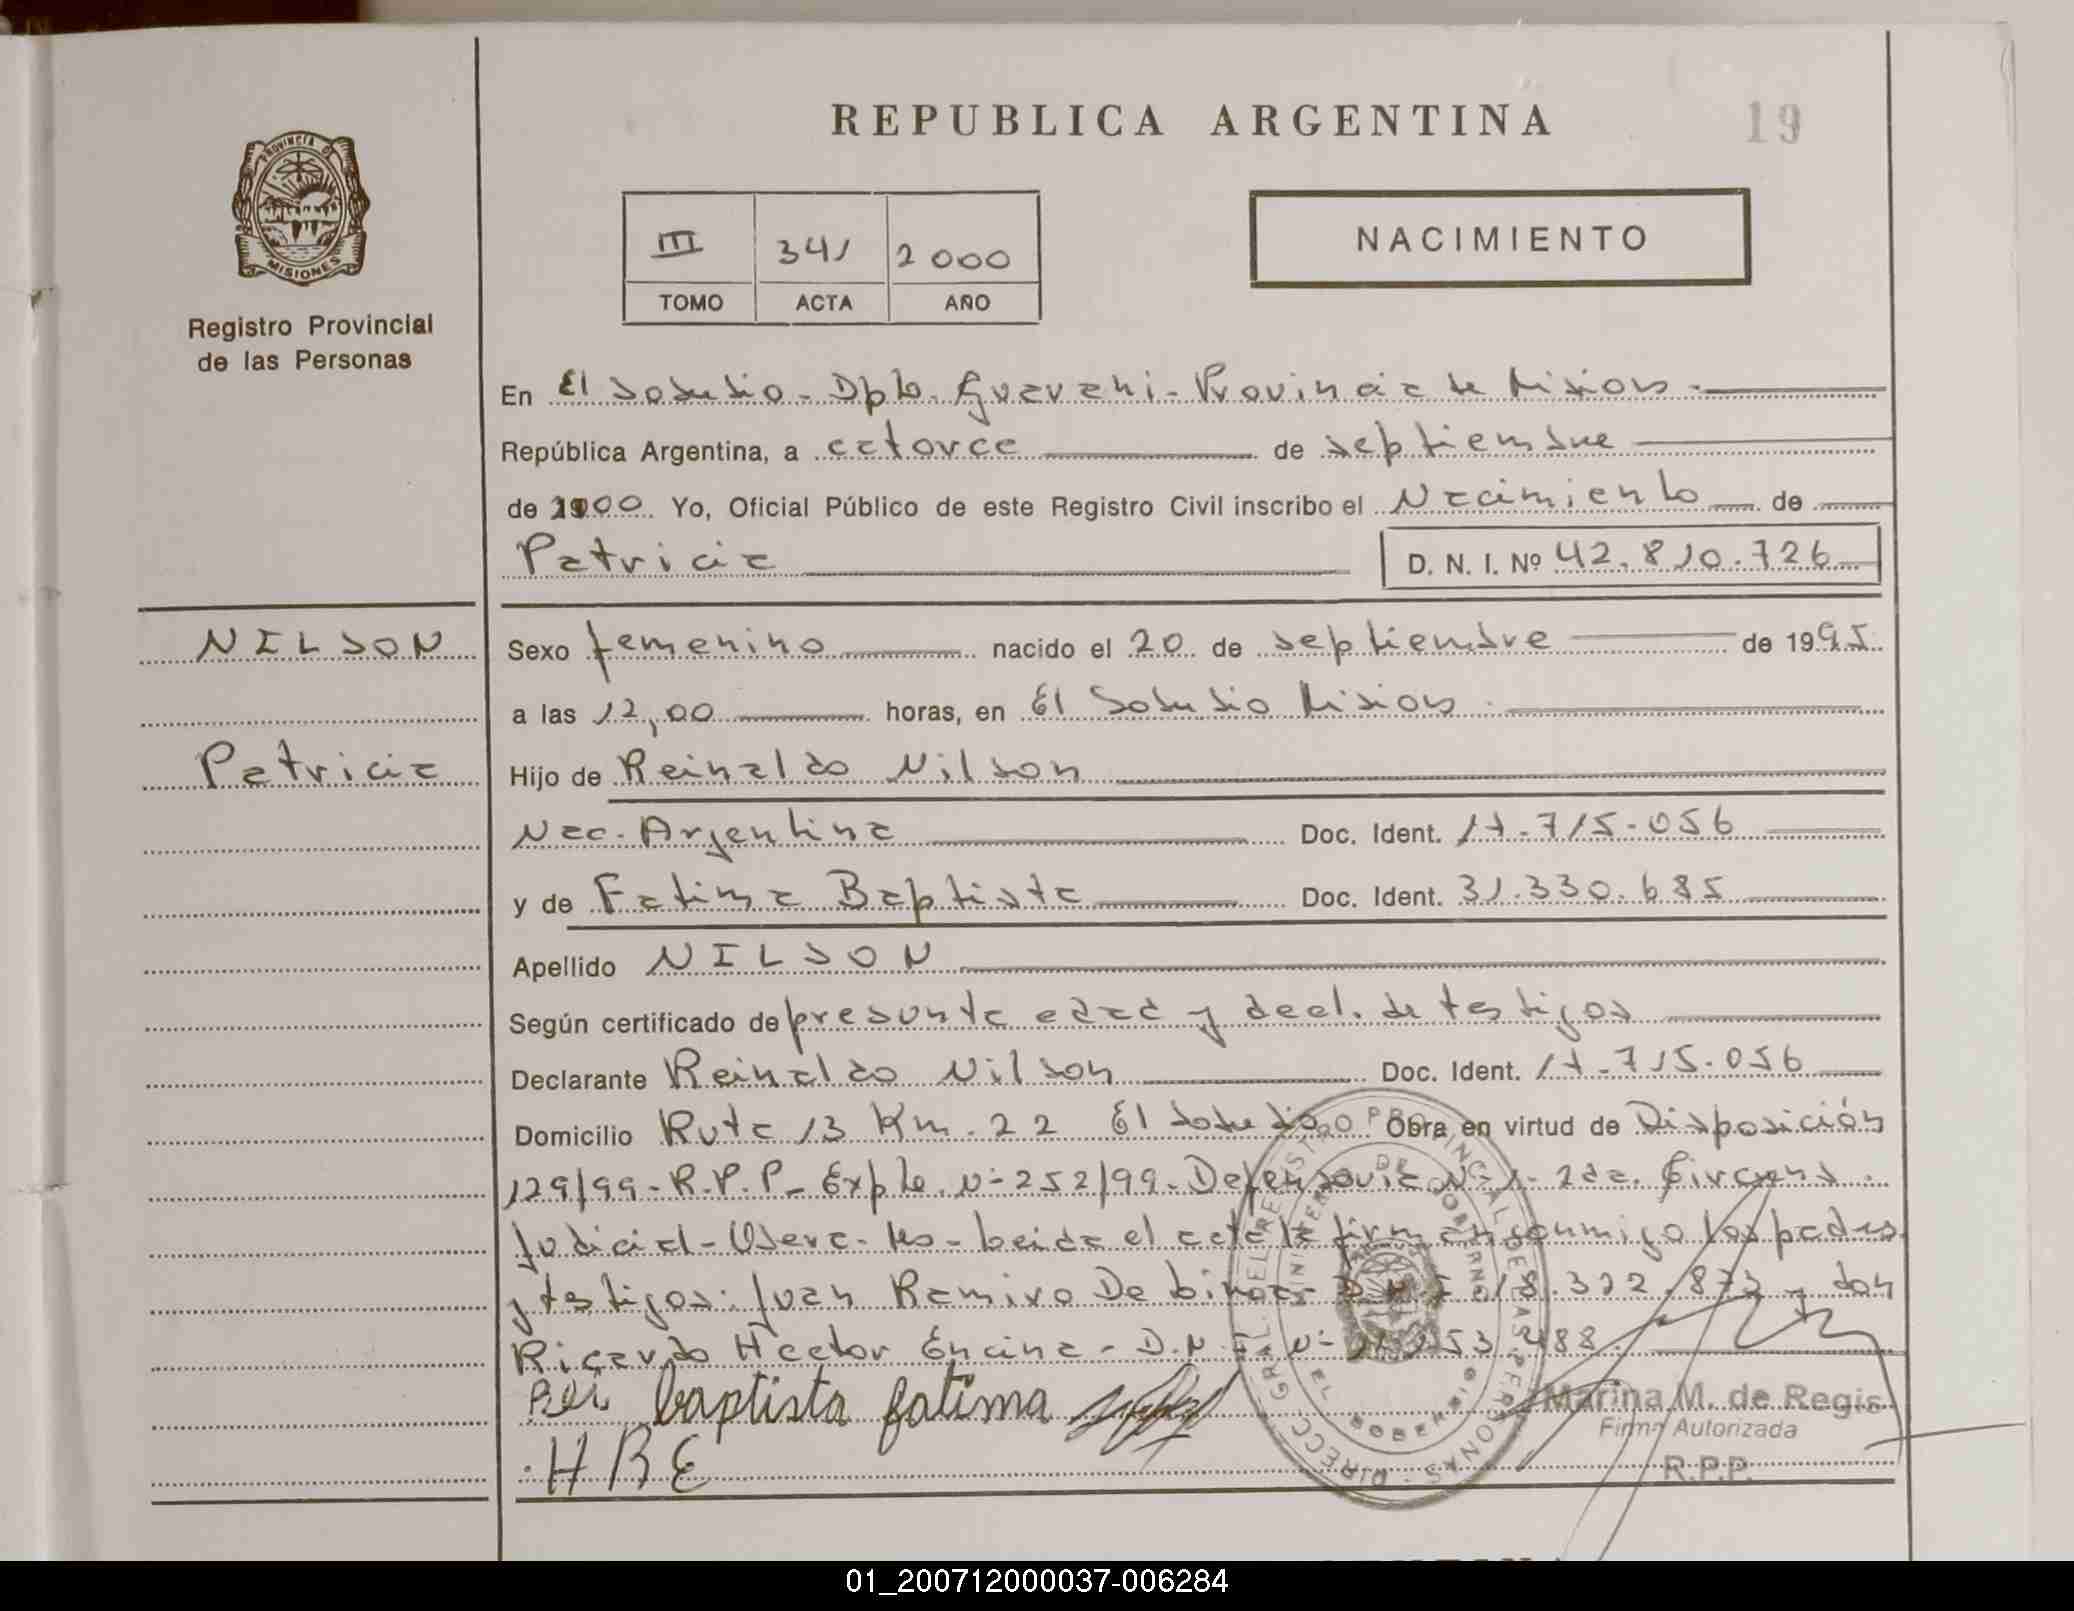 REPUBLICA ARGENTINA
19
PROVINCIA DE
MISIONES
Registro Provincial
de las Personas
III 341 2000
TOMO ACTA AÑO
NACIMIENTO
En El Soberbio - Dpto. Guarani - Provincia de Misiones -
República Argentina, a catorce de septiembre
de 2000 Yo, Oficial Público de este Registro Civil inscribo el Nacimiento de
Patricia D. N. I. Nº 42.810.726
NILSON
Patricia
Sexo femenino nacido el 20 de septiembre de 1995
a las 12,00 horas, en El Soberbio Misiones
Hijo de Reinaldo Nilson
Nac. Argentina Doc. Ident. 17.715.056
y de Fatima Baptista Doc. Ident. 31.330.685
Apellido NILSON
Según certificado de presunta edad y decl. de testigos
Declarante Reinaldo Nilson Doc. Ident. 17.715.056
Domicilio Ruta 13 Km. 22 El Soberbio Obra en virtud de Disposición
129/99 - R.P.P - Expte. Nº 252/99 - Defensoria Nº 1 - 2da. Circuns.
Judicial - Obera - Ms - Leida el acta la firman conmigo los padres
y testigos: Juan Ramiro De D.N.I 18.322.873 y don
Ricardo Hector Encina - D.N.I Nº
Rei baptista fatima
HBE
DIRECC. GRAL. DEL REGISTRO PROVINCIAL DE LAS PERSONAS
MINISTERIO DE GOBIERNO
Marina M. de Regis
Firma Autorizada
R.P.P.
01_200712000037-006284